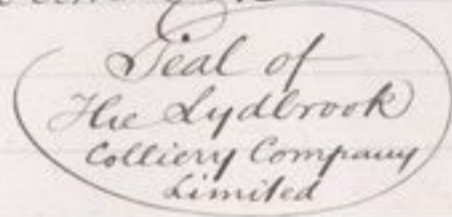 Seal of
The Lydbrook
Colliery Company
Limited